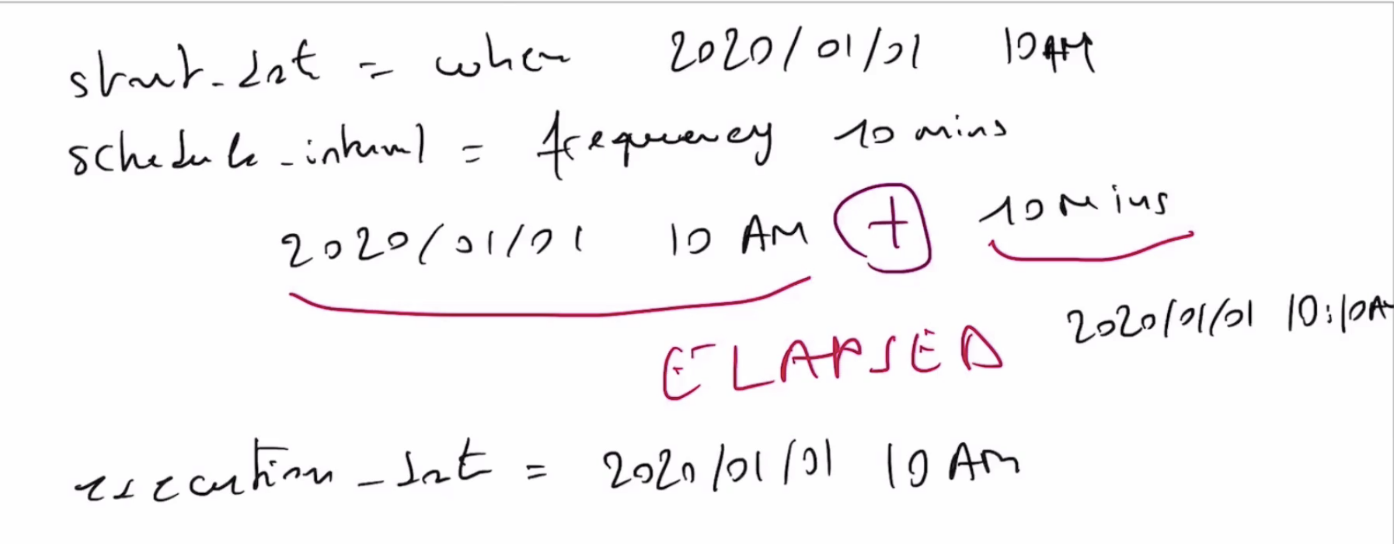 start_date = when 2020/01/01 10AM
schedule_interval = frequency 10 mins
2020/01/01 10 AM + 10 Mins
2020/01/01 10:10A
ELAPSED
execution_date = 2020/01/01 10 AM